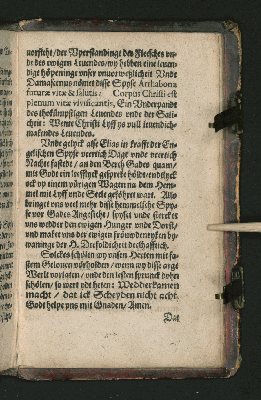 vorsicht / der Vperstandinge des Fleesches vn-
de des ewigen Leuendes / wy hebben eine leuen-
dige höpeninge vnser vnuorweßlicheit Vnde
Damascenus nömet disse Spyse Arrhabona
futuræ vitæ & salutis: Corpus Christi est
plenum vitæ viuificantis, Ein Vnderpandt
des thokümpstigen Leuendes vnde der Sali-
cheit: Wente Christi Lyff ys vull leuendich-
makendes Leuendes.
Vnde gelyck alse Elias in krafft der En-
gelischen Spyse veertich Dage vnde veertich
Nacht fastede / an den Berch Gades quam /
mit Godt ein leefflyck gespreke höldt / endtlyck
ock vp einem vürigen Wagen na dem Hem-
mel mit Lyff vnde Seele geföhret wart. Also
bringet vns veel mehr disse hemmelische Spy-
se vor Gades Angesicht / spyset vnde stercket
vns wedder den ewigen Hunger vnde Dorst /
vnd maket vns der ewigen fröuwdenryken by-
waninge der H. Drefoldicheit deelhafftich.
Solckes schölen wy vnsen Herten mit fa-
stem Gelouen vörholden / wenn wy disse arge
Werlt vorlaten / vnde den lesten sprunck dohn
schölen / so wert ydt heten: Wedderkamen
macht / dat ick Scheyden nicht acht.
Godt helpe vns mit Gnaden / Amen.
Dat